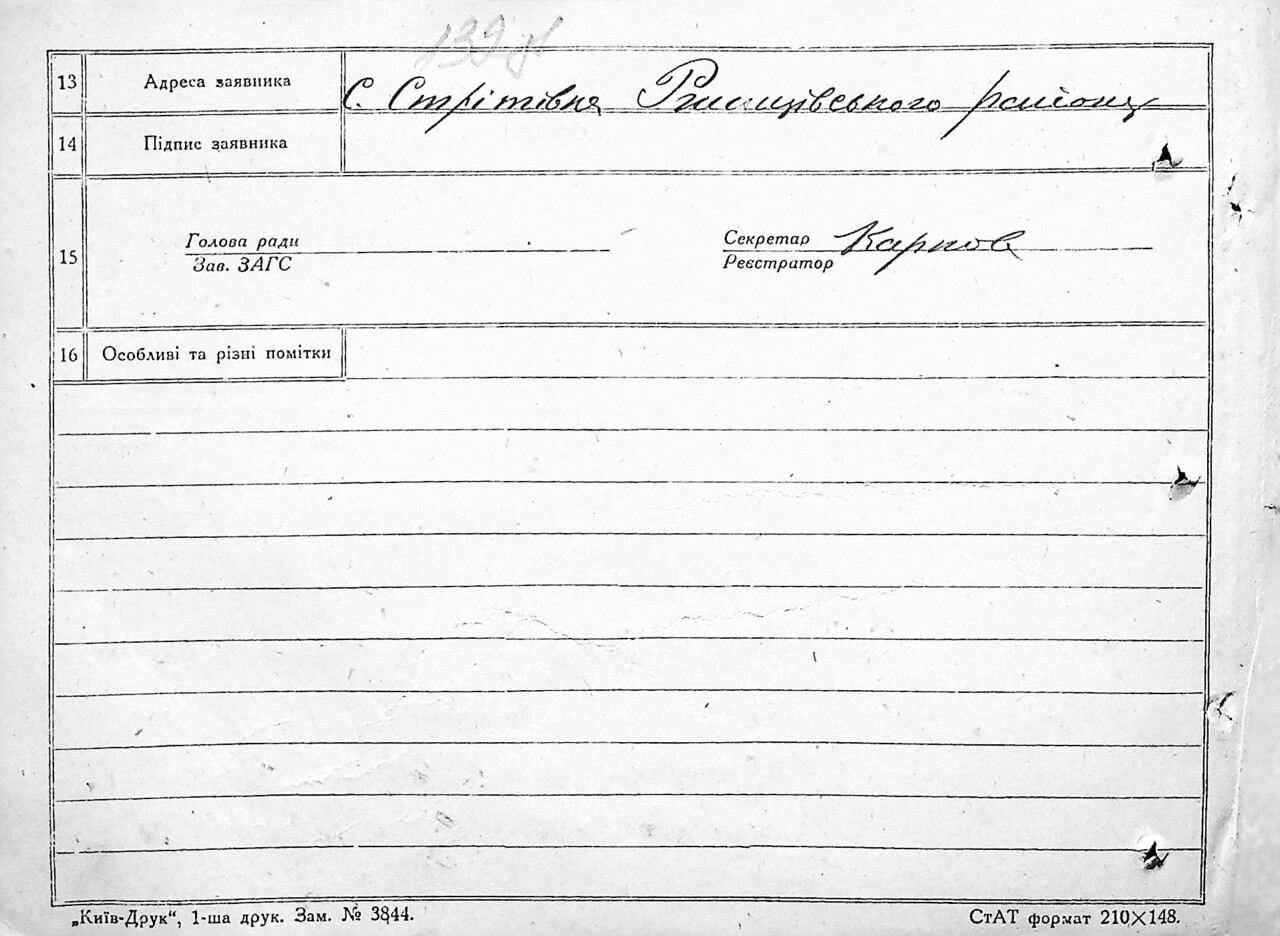 139 зв
13 Адреса заявника С. Стрітівка Ржищівського району
14 Підпис заявника
15
Голова ради Секретар Карпов
Зав. ЗАГС Реєстратор
16 Особливі та різні помітки
„Київ-Друк“, 1-ша друк. Зам. № 3844. СтАТ формат 210×148.